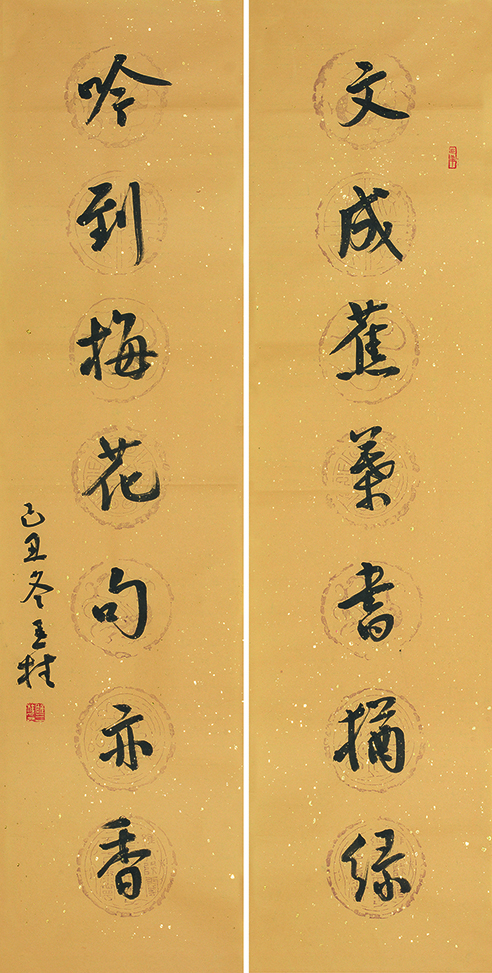 文成蕉葉書猶绿
吟到梅花句亦香
己丑冬玉柱